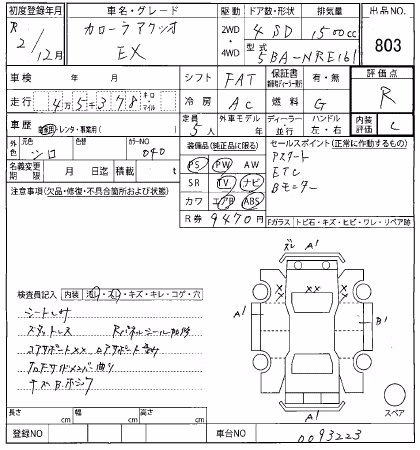 初度登録年月 車名・グレード 駆動 ドア数・形状 排気量 出品NO.
R 2/12月 カローラアクシオ 2WD・4WD 4 SD 1500cc 803
EX 型式 5BA-NRE161
車検 年 月 シフト FAT 保証書 有・無 評価点
走行 4万5千378 キロ マイル 冷房 AC 燃料 G R
車歴 自家用・レンタ・事業用( ) 定員 5人 外車モデル 年 ディーラー・並行 ハンドル 左・右 内装評価 C
外色 元色 シロ 色替 カラーNO 040 装備品(純正品に限る) セールスポイント(正常に作動するもの)
名義変更期限 月 日迄 積載 t PS PW AW Pスタート
注意事項(欠品・修復・不具合箇所および状態) SR TV ナビ ETC
カワ エアB ABS Bモニター
R券 9470円 Fガラス トビ石・キズ・ヒビ・ワレ・リペア跡
ズレ A1
検査員記入 内装 汚レ・スレ・キズ・キレ・コゲ・穴
シートレサ XX
スタットレス A1 B1
コアサポートXX
A1
スペア
長さ cm 幅 cm 高さ cm
登録NO 車台NO 0093223